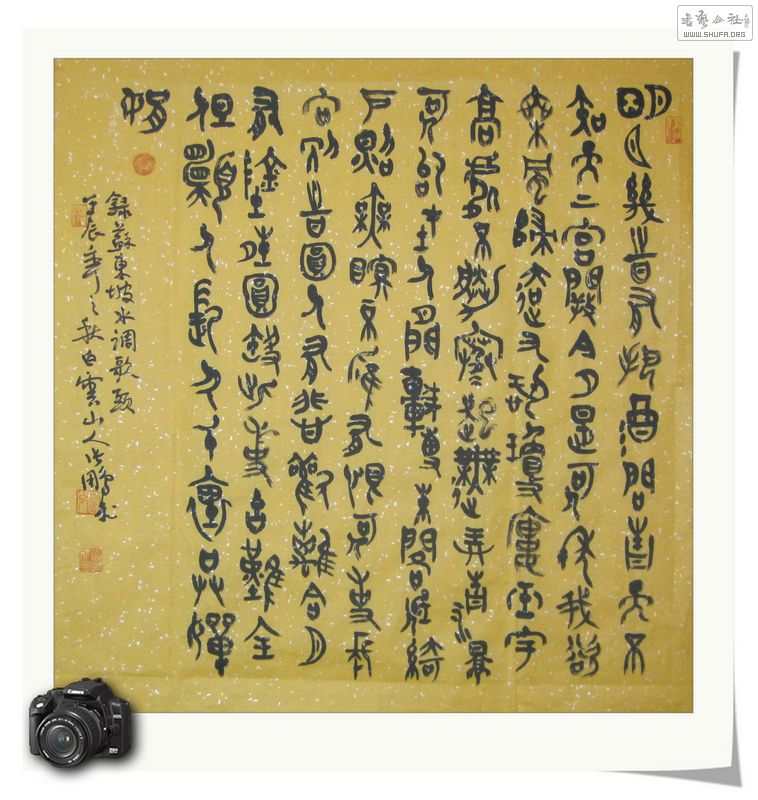 書藝公社
WWW.SHUFA.ORG
明月幾時有把酒問青天不
知天上宮闕今夕是何年我欲
乘風歸去又恐瓊樓玉宇
高處不勝寒起舞弄清影
何似在人間轉朱閣低綺
戶照無眠不應有恨何事長
向別時圓人有悲歡離合月
有陰晴圓缺此事古難全
但願人長久千里共嬋
娟
錄蘇東坡水調歌頭
壬辰年之秋白雲山人
Canon
EOS